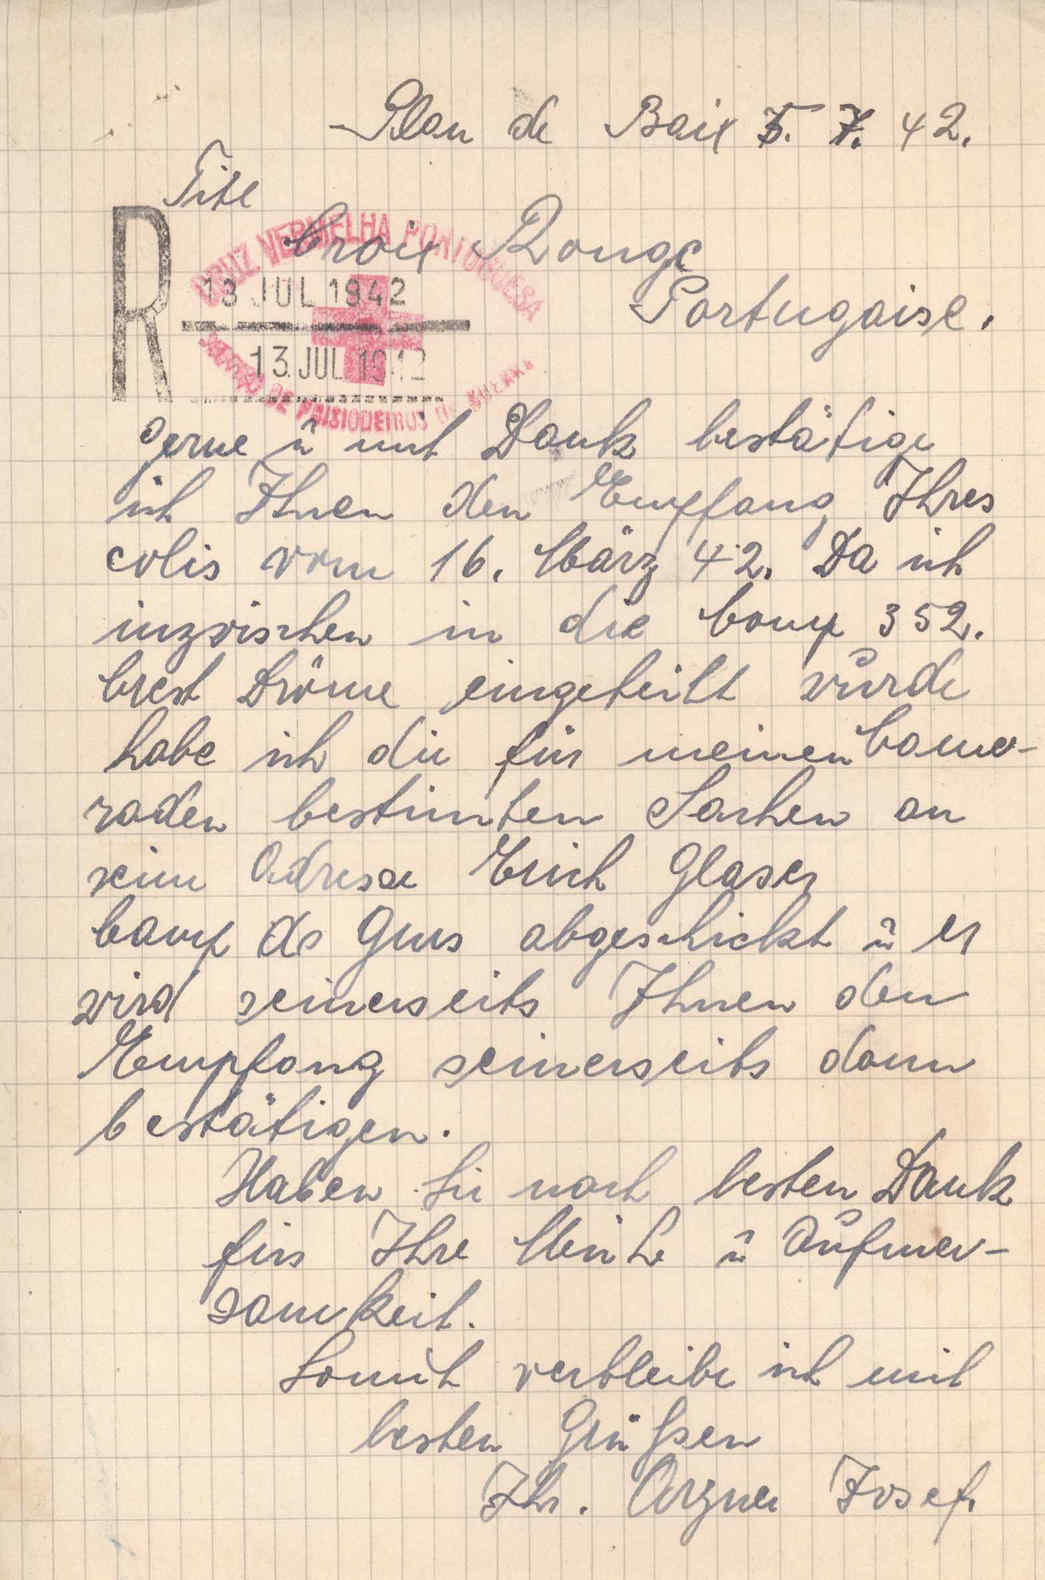 Plan de Baix 5. 7. 42.
Tite
Croix Rouge
Portugaise.
R
CRUZ VERMELHA PORTUGUESA
13 JUL 1942
13. JUL 1942
DE PRISIONEIROS DE GUERRA
gerne ü mit Dank bestätige
ich Ihnen den Empfang Ihres
colis vom 16. März 42. Da ich
inzwischen in die Comp 352.
Crest Drôme eingeteilt wurde
habe ich die für meinen Came-
raden bestimten Sachen an
seine Adresse Erich Glaser
Camp de Gurs abgeschickt ü er
wird seinerseits Ihnen den
Empfang seinerseits dann
bestätigen.
Haben Sie noch besten Dank
fürs Ihre Mühe ü Aufmer-
samkeit.
Somit verbleibe ich mit
besten Grüßen
Ihr. Arzner Josef.